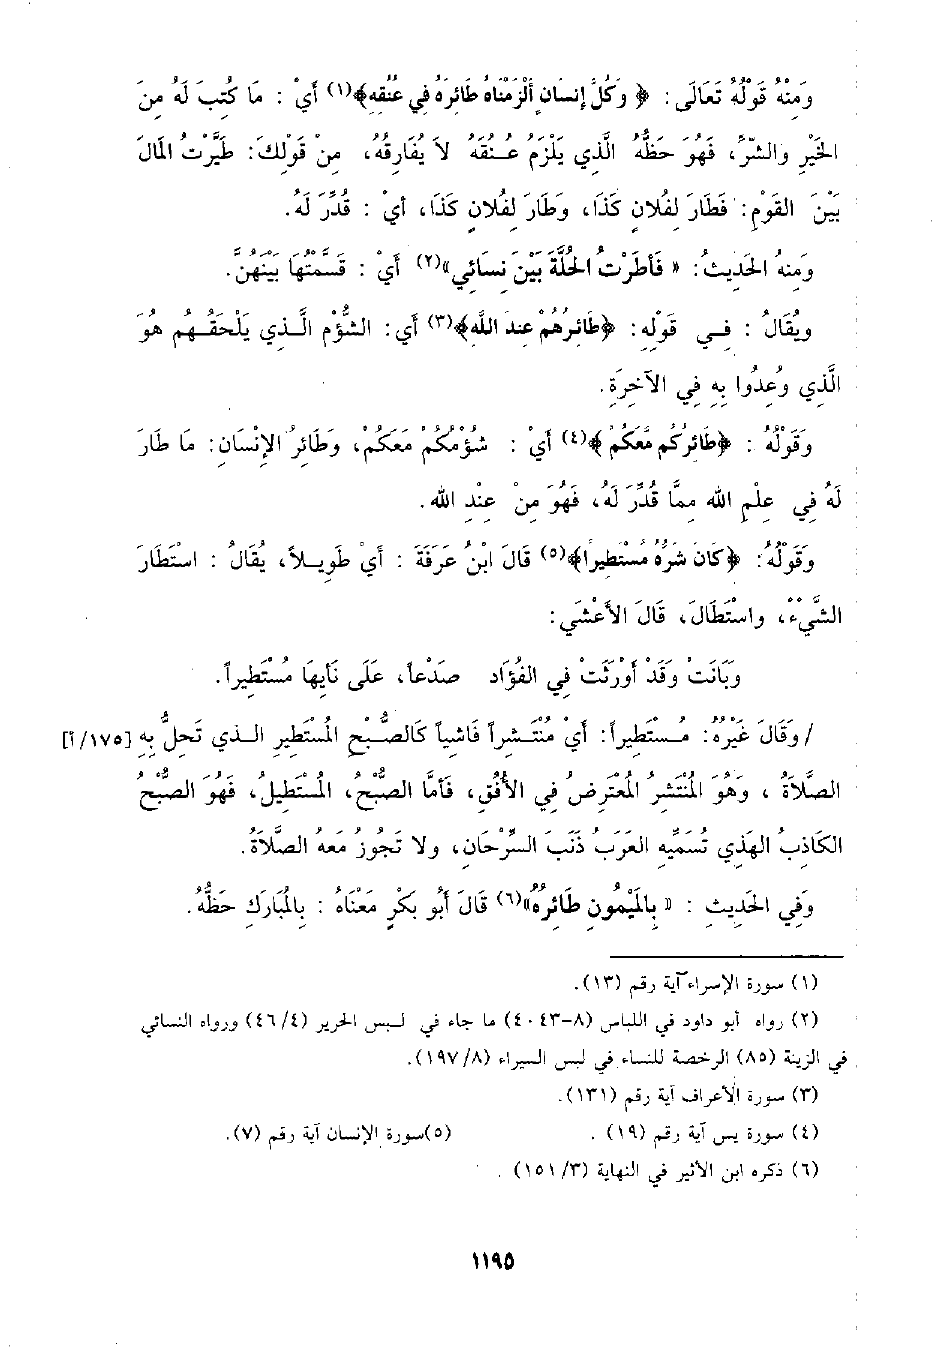 وَمِنْهُ قَوْلُهُ تَعَالَى: ﴿ وَكُلَّ إِنسَانٍ أَلْزَمْنَاهُ طَائِرَهُ فِي عُنُقِهِ﴾(١) أَيْ : مَا كُتِبَ لَهُ مِنَ
الخَيْرِ والشَّرِّ، فَهُوَ حَظُّهُ الَّذِي يَلْزَمُ عُنُقَهُ لاَ يُفَارِقُهُ، مِنْ قَوْلِكَ: طَيَّرْتُ المَالَ
بَيْنَ القَوْمِ: فَطَارَ لِفُلاَنٍ كَذَا، وَطَارَ لِفُلاَنٍ كَذَا، أيْ : قُدِّرَ لَهُ.
وَمِنهُ الحَدِيثُ: « فَأَطَرْتُ الحُلَّةَ بَيْنَ نِسَائِي»(٢) أَيْ : قَسَّمْتُهَا بَيْنَهُنَّ.
ويُقَالُ : فِي قَوْلِهِ: ﴿طَائِرُهُمْ عِندَ اللَّهِ﴾(٣) أَي: الشُّؤْم الَّذِي يَلْحَقُهُم هُوَ
الَّذِي وُعِدُوا بِهِ فِي الآخِرَةِ.
وَقَوْلُهُ : ﴿طَائِرُكُم مَّعَكُمْ ﴾(٤) أَيْ : شُؤْمُكُمْ مَعَكُمْ، وَطَائِرُ الإِنْسَانِ: مَا طَارَ
لَهُ فِي عِلْمِ الله مِمَّا قُدِّرَ لَهُ، فَهُوَ مِنْ عِنْدِ الله.
وَقَوْلُهُ: ﴿كَانَ شَرُّهُ مُسْتَطِيراً﴾(٥) قَالَ ابْنُ عَرَفَةَ : أَيْ طَوِيلاً، يُقَالُ : اسْتَطَارَ
الشَّيْءُ، واسْتَطَالَ، قَالَ الأَعْشَى:
وَبَانَتْ وَقَدْ أَوْرَثَتْ فِي الفُؤَاد صَدْعاً، عَلَى نَأيِهَا مُسْتَطِيراً.
/ وَقَالَ غَيْرُهُ: مُسْتَطِيراً: أَيْ مُنْتَشِراً فَاشِياً كَالصُّبْحِ المُسْتَطِيرِ الذي تَحِلُّ بِهِ [١٧٥/أ]
الصَّلاَةُ ، وَهُوَ المُنْتَشِرُ المُعْتَرِضُ فِي الأُفُقِ، فَأَمَّا الصُّبْحُ، المُسْتَطِيلُ، فَهُوَ الصُّبْحُ
الكَاذِبُ الهَذِي تُسَمِّيهِ العَرَبُ ذَنَبَ السِّرْحَانِ، ولا تَجُوزُ مَعَهُ الصَّلاَةُ.
وَفِي الحَدِيثِ : « بِالمَيْمُونِ طَائِرُهُ»(٦) قَالَ أَبُو بَكْرٍ مَعْنَاهُ : بِالمُبَارَكِ حَظُّهُ.
(١) سورة الإسراء آية رقم (١٣).
(٢) رواه أبو داود في اللباس (٨-٤٠٤٣) ما جاء في لبس الحرير (٤٦/٤) ورواه النسائي
في الزينة (٨٥) الرخصة للنساء في لبس السيراء (١٩٧/٨).
(٣) سورة الأعراف آية رقم (١٣١).
(٤) سورة يس آية رقم (١٩) . (٥)سورة الإنسان آية رقم (٧).
(٦) ذكره ابن الأثير في النهاية (١٥١/٣) .
١١٩٥